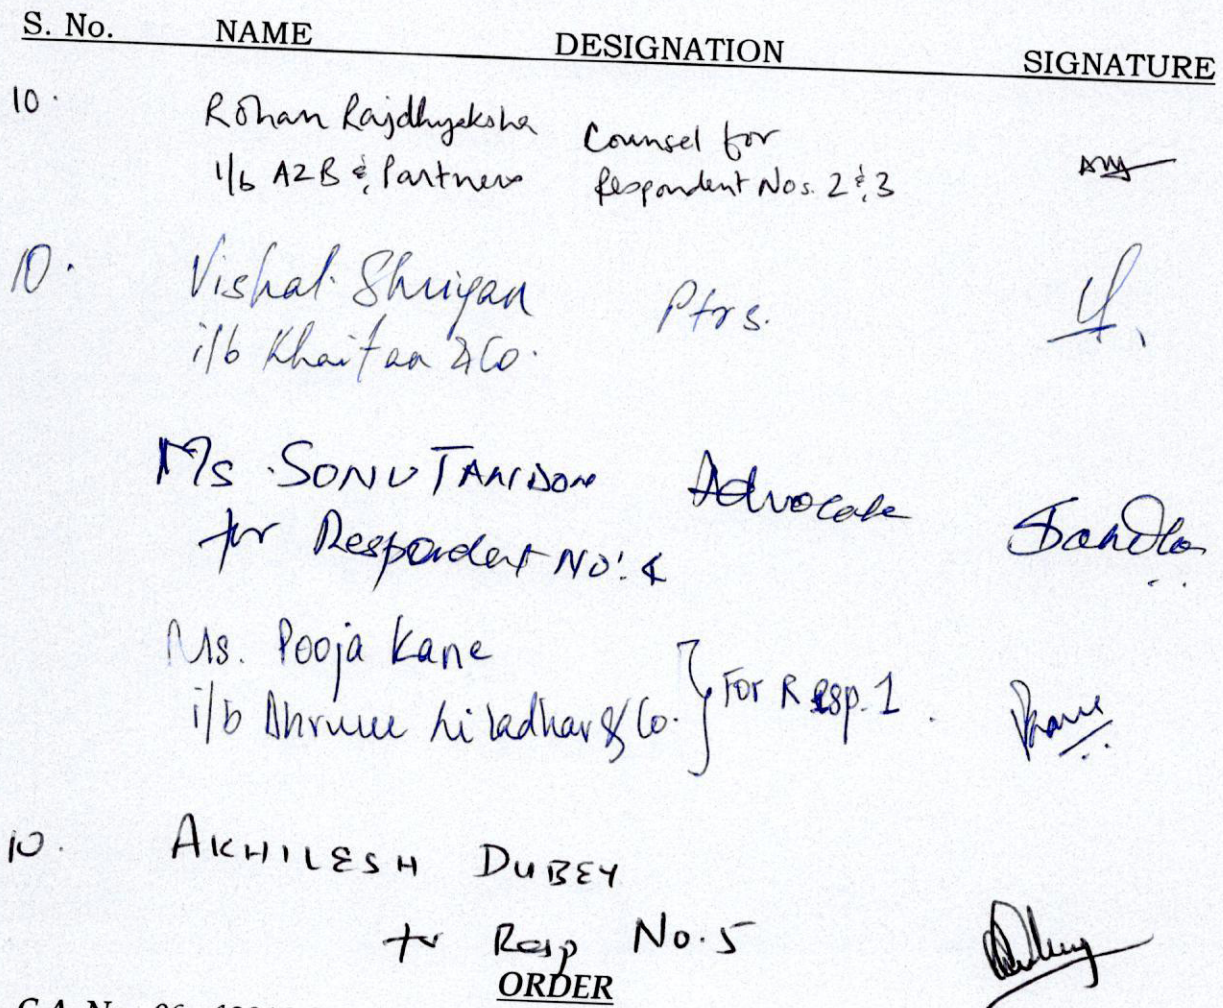 S. No. NAME DESIGNATION SIGNATURE
10. Rohan Rajdhyaksha Counsel for
i/b AZB & Partners Respondent Nos. 2 & 3
10. Vishal Shriyan Ptrs.
i/b Khaitan & Co.
Ms. SONU TANDON Advocate
for Respondent No. 4
Ms. Pooja Kane
i/b Dhruve Liladhar & Co. } For Resp. 1
10. AKHILESH DUBEY
for Resp No. 5
ORDER